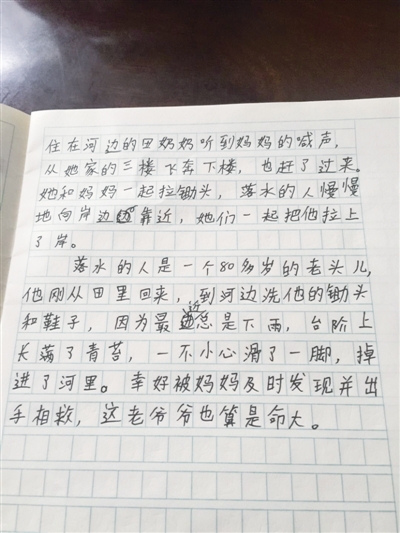 住在河边的田奶奶听到妈妈的喊声，
从她家的三楼飞奔下楼，也赶了过来。
她和妈妈一起拉锄头，落水的人慢慢
地向岸边靠近，她们一起把他拉上
了岸。
落水的人是一个80多岁的老头儿，
他刚从田里回来，到河边洗他的锄头
和鞋子，因为最近总是下雨，台阶上
长满了青苔，一不小心滑了一脚，掉
进了河里。幸好被妈妈及时发现并出
手相救，这老爷爷也算是命大。